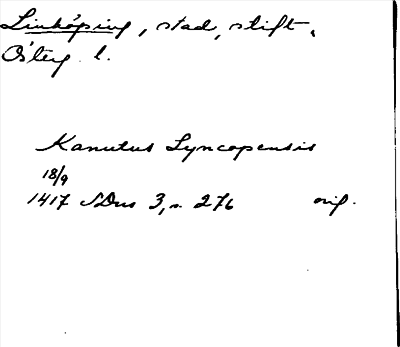 Linköping, stad, stift,
Österg. l.
Kanutus Lyncopensis
18/9
1417 SDns 3, s. 276 orig.